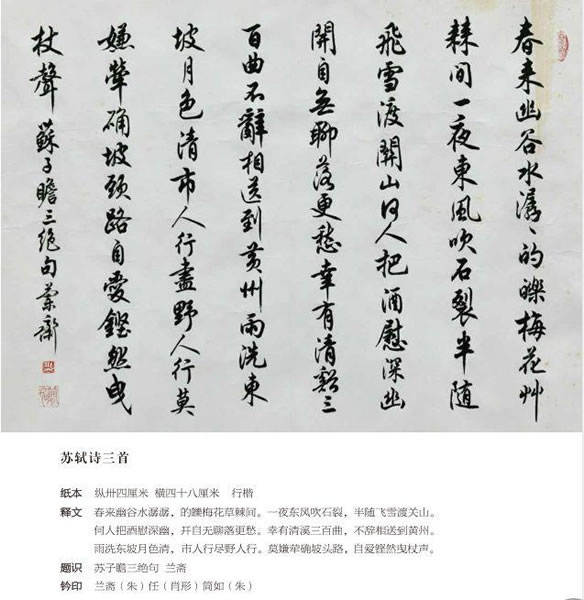 春来幽谷水潺〻的皪梅花艸
棘間一夜東風吹石裂半随
飛雪渡關山何人把酒慰深幽
開自無聊落更愁幸有清谿三
百曲不辭相送到黄州雨洗東
坡月色清市人行盡野人行莫
嫌犖确坡頭路自愛鏗然曳
杖聲 蘇子瞻三绝句 蘭齋
苏轼诗三首
纸本 纵卅四厘米 横四十八厘米 行楷
释文 春来幽谷水潺潺，的皪梅花草棘间。一夜东风吹石裂，半随飞雪渡关山。
何人把酒慰深幽，开自无聊落更愁。幸有清溪三百曲，不辞相送到黄州。
雨洗东坡月色清，市人行尽野人行。莫嫌荦确坡头路，自爱铿然曳杖声。
题识 苏子瞻三绝句 兰斋
钤印 兰斋（朱）任（肖形）简如（朱）